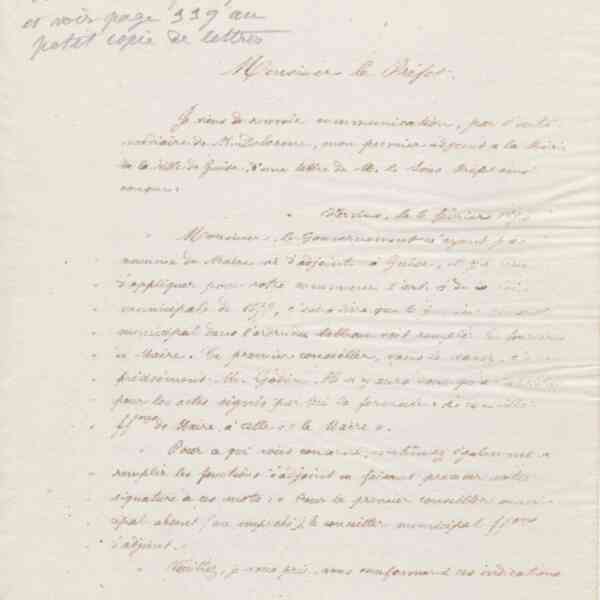 et voir page 339 au
petit copie de lettres
Monsieur le Préfet.
Je viens de recevoir communication, par l'inter
médiaire de M. Delorme, mon premier adjoint à la Mairie
de la ville de Guise, d'une lettre de M. le Sous Préfet ainsi
conçue:
Vervins, le 6 février
Monsieur, le Gouvernement n'ayant pas
nommé de Maire ni d'adjoint à Guise, il y a
d'appliquer pour votre commune l'art. de la loi
municipale de c'est à dire que le
municipal dans l'ordre du tableau doit remplir les fonctions
de Maire. Ce premier conseiller, vous le savez,
précisément M. Godin. Il n'y aura donc qu'à
pour les actes signés par lui la formule: de conseiller
ffons de Maire, à celle: le Maire.
Pour ce qui vous concerne, continuez également à
remplir les fonctions d'adjoint en faisant précéder votre
signature de ces mots: Pour le premier conseiller muni-
cipal absent (ou empêché), le conseiller municipal ffons
d'adjoint.
Veuillez, je vous prie, vous conformer à ces indications